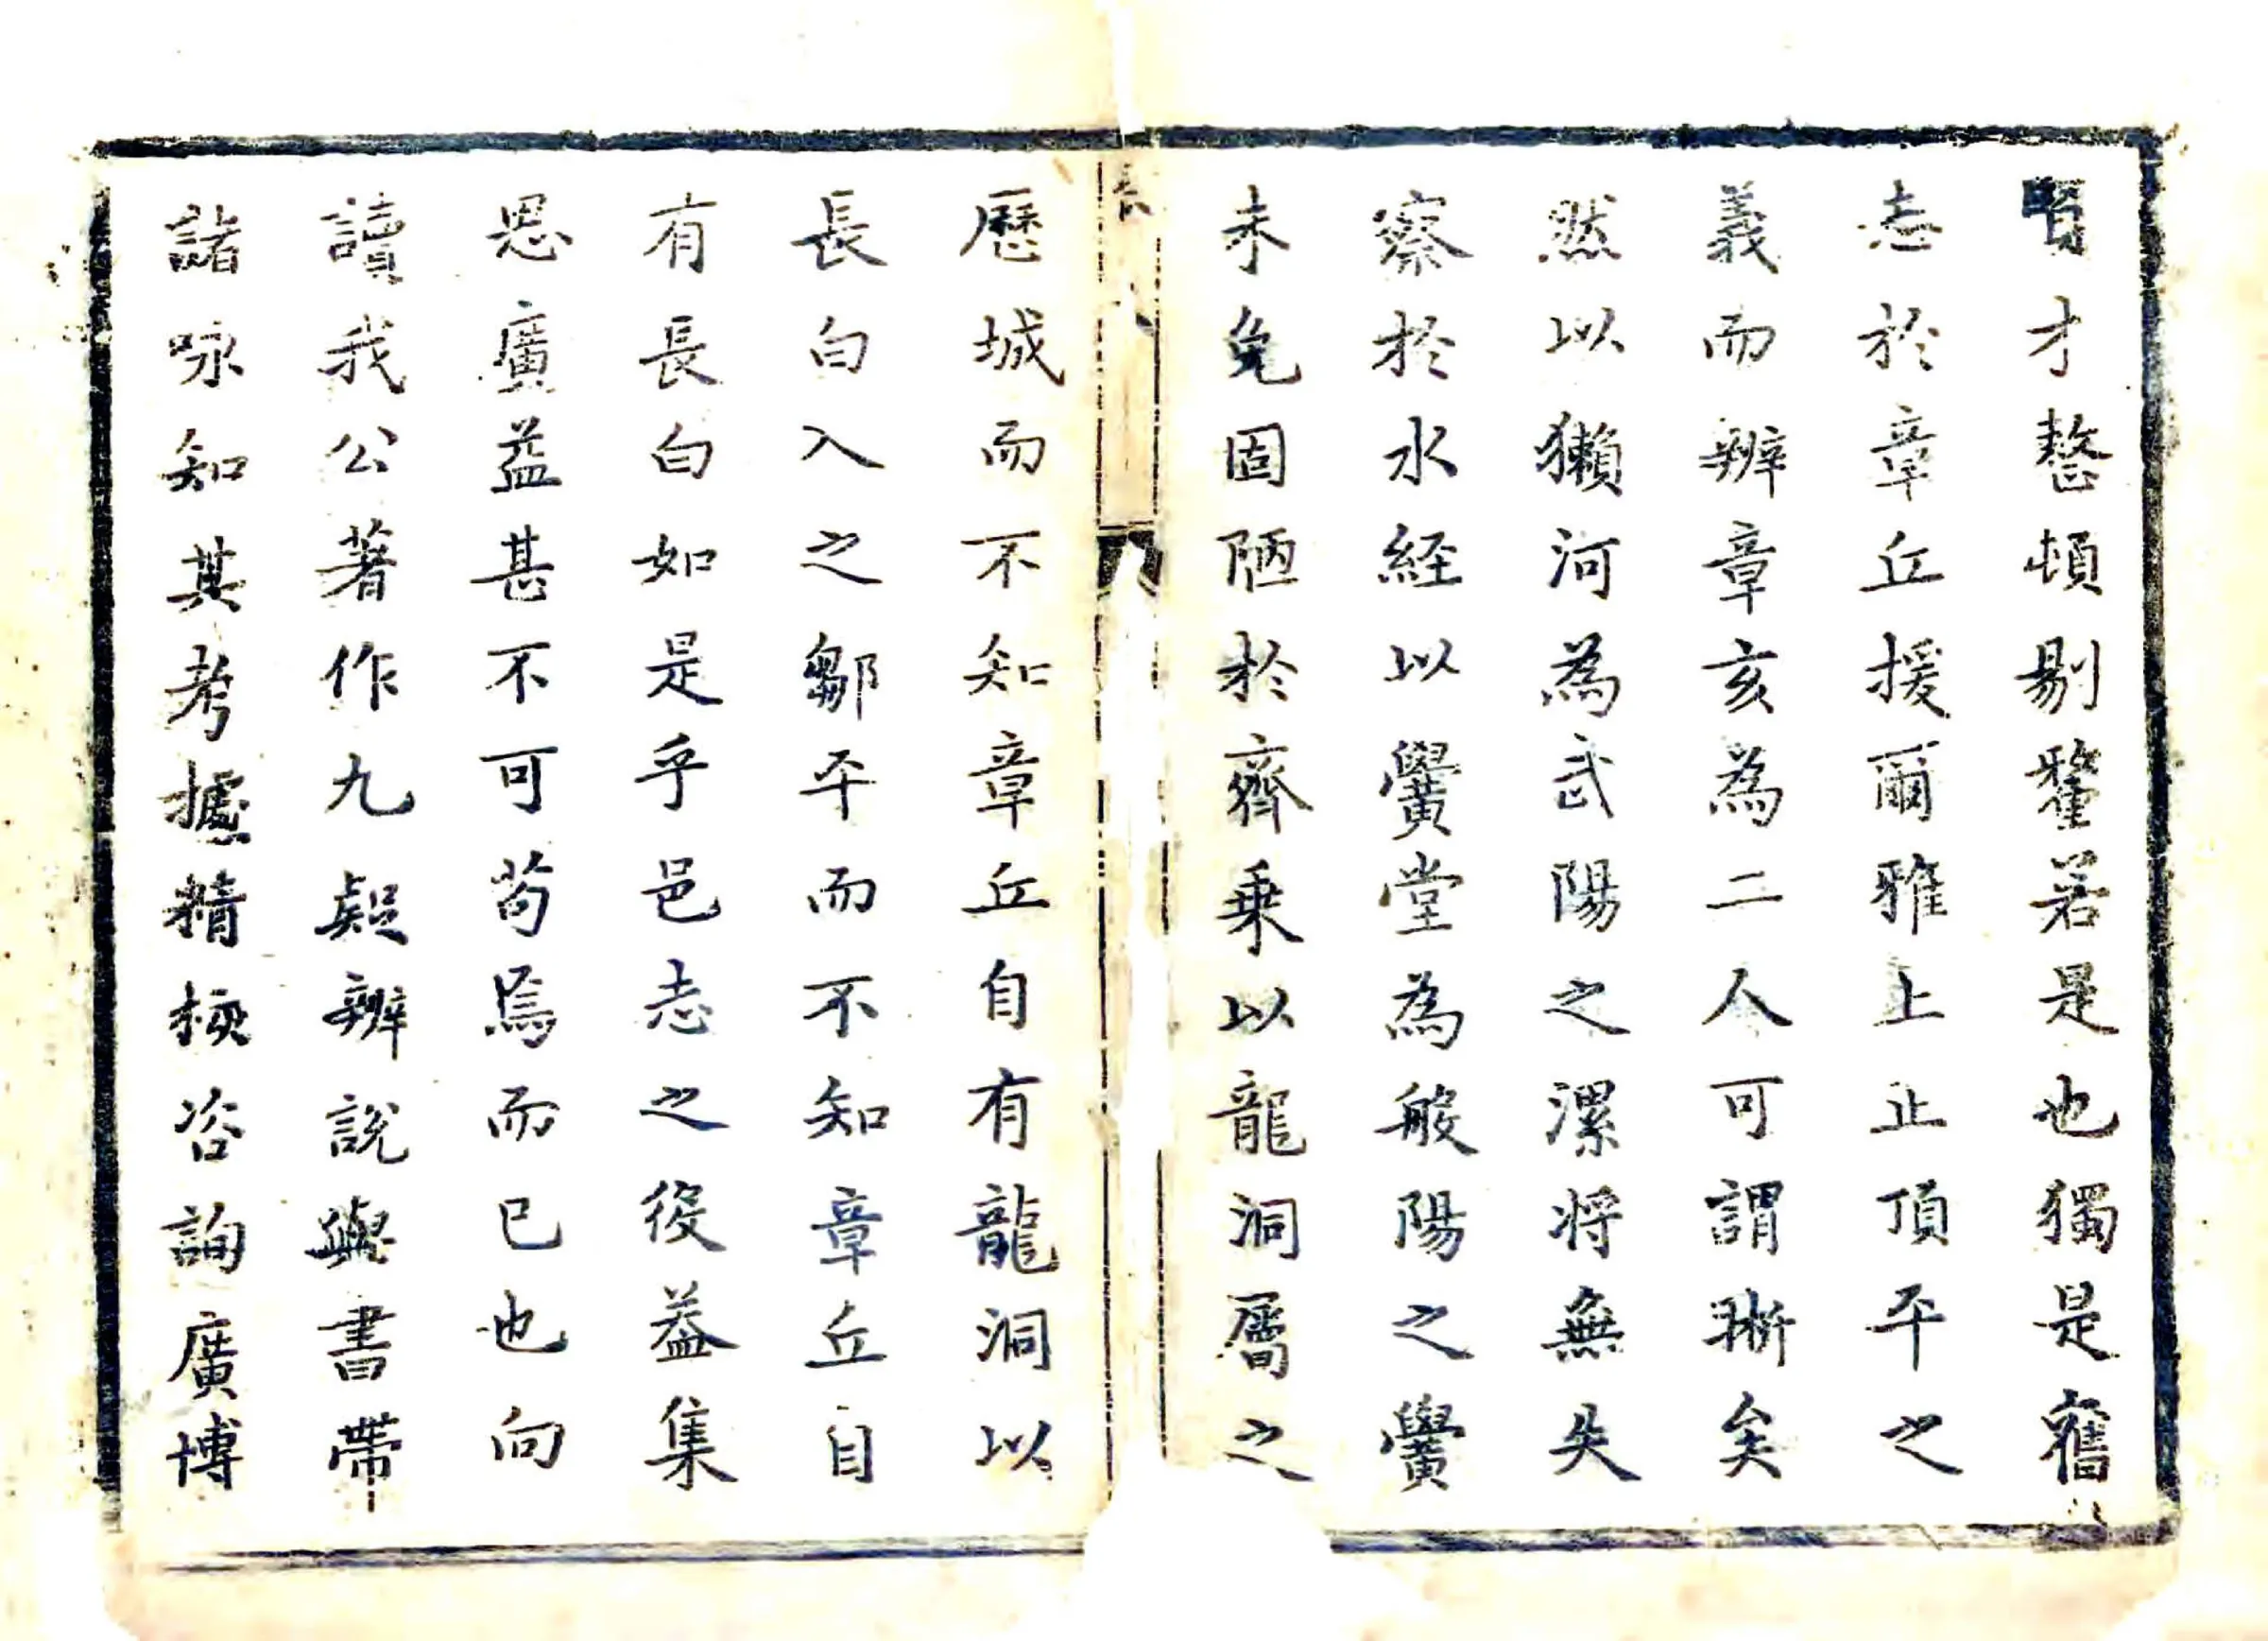 才整頓剔釐若是也獨是舊
志於章丘援爾雅上止頂平之
義而辨章亥為二人可謂晰矣
然以獺河為武陽之漯將無失
察於水經以黌堂為般陽之黌
未免固陋於齊乗以龍洞層之
長
歷城而不知章丘自有龍洞以
長白入之鄒平而不知章丘自
有長白如是乎邑志之役益集
思廣益甚不可苟焉而已也向
讀我公著作九疑辨說與書帶
諸咏知其考據精核咨詢廣博